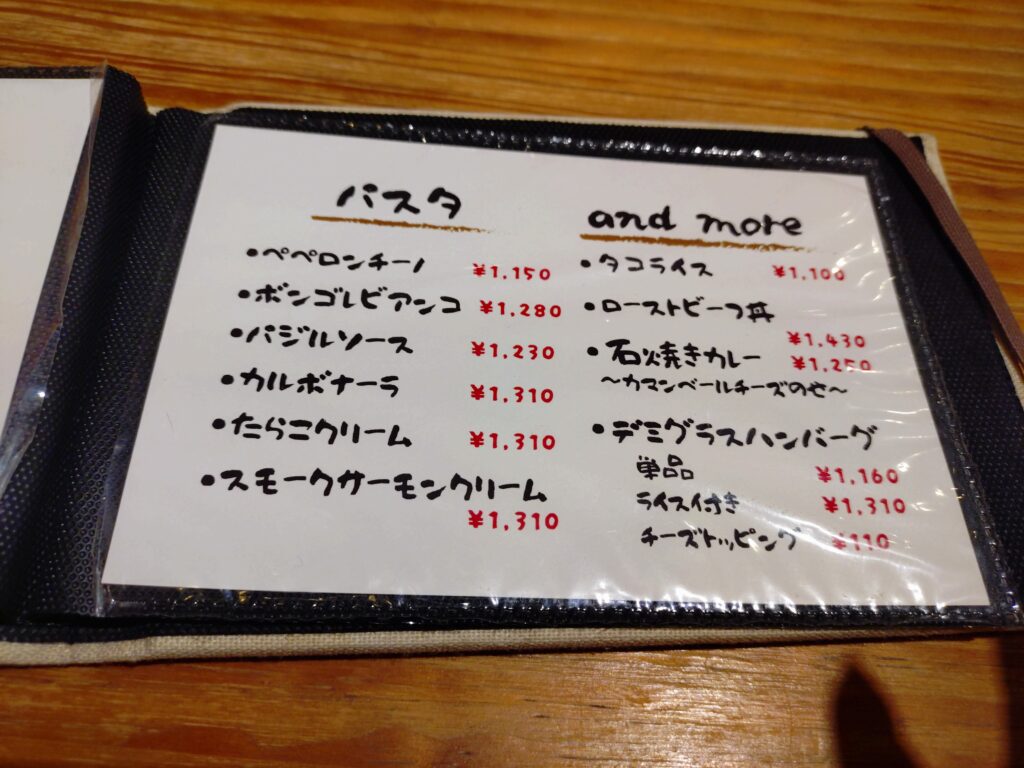 パスタ
・ペペロンチーノ ¥1,150
・ボンゴレビアンコ ¥1,280
・バジルソース ¥1,230
・カルボナーラ ¥1,310
・たらこクリーム ¥1,310
・スモークサーモンクリーム
¥1,310
and more
・タコライス ¥1,100
・ローストビーフ丼
¥1,430
・石焼きカレー ¥1,250
〜カマンベールチーズのせ〜
・デミグラスハンバーグ
単品 ¥1,160
ライス付き ¥1,310
チーズトッピング ¥110